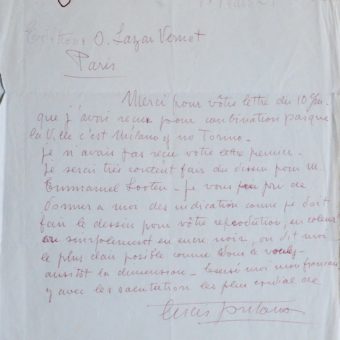 Editions O. Lazar Vernet
Paris
Merci pour vôtre lettre du 10
que j'avois reçue pour combination pasque
la Ville c'est Milano y no Torino.
Je n'avais pas reçue votre lettre
Je serai très content fair du dessin pour M.
Emmanuel Looten. Je vous pri de
donner a moi des indication comme je doit
fair le dessin pour vôtre reproduction, en coleur
ou simplement en encre noir, ou dit moi
le plus clair posible comme vous le voulez
aussitot la dimension. moi mon français
y avec les salutation les plus cordial de